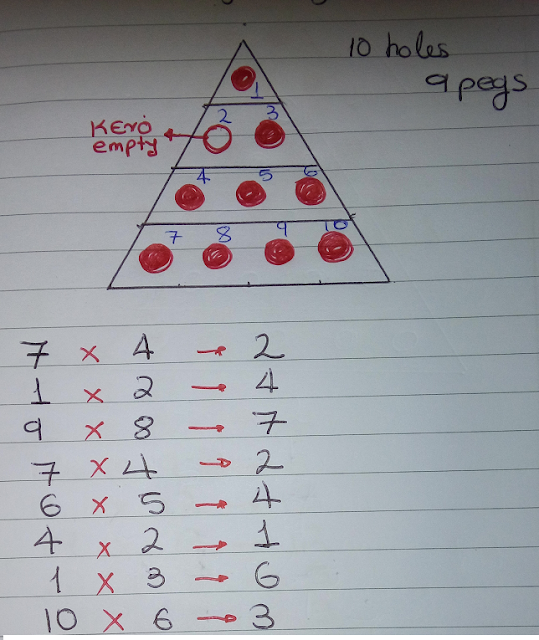 10 holes
9 pegs
1
κενό
empty
2 3
4 5 6
7 8 9 10
7 × 4 → 2
1 × 2 → 4
9 × 8 → 7
7 × 4 → 2
6 × 5 → 4
4 × 2 → 1
1 × 3 → 6
10 × 6 → 3